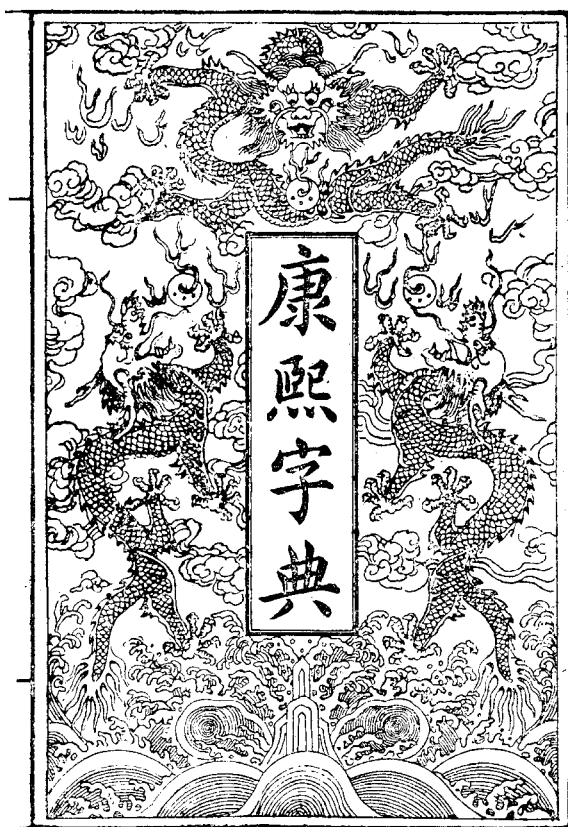 康熙字典